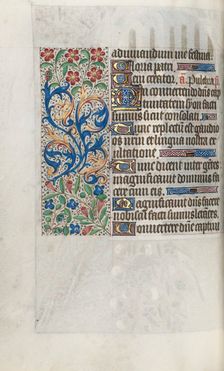 adiuuandum me festina
Gloria patri
creator. a. Pulchra
In conuertendo dns cap
tiuitatem syon facti
sumus sicut consolati
Tunc repletum est gaudio
os nrm et lingua nostra ex
ultatione
Tunc dicent inter gētes
magnificauit dominus fa
cere cum eis
Magnificauit dns facere
nobiscū facti sumus letātes
Conuertere dne captiui